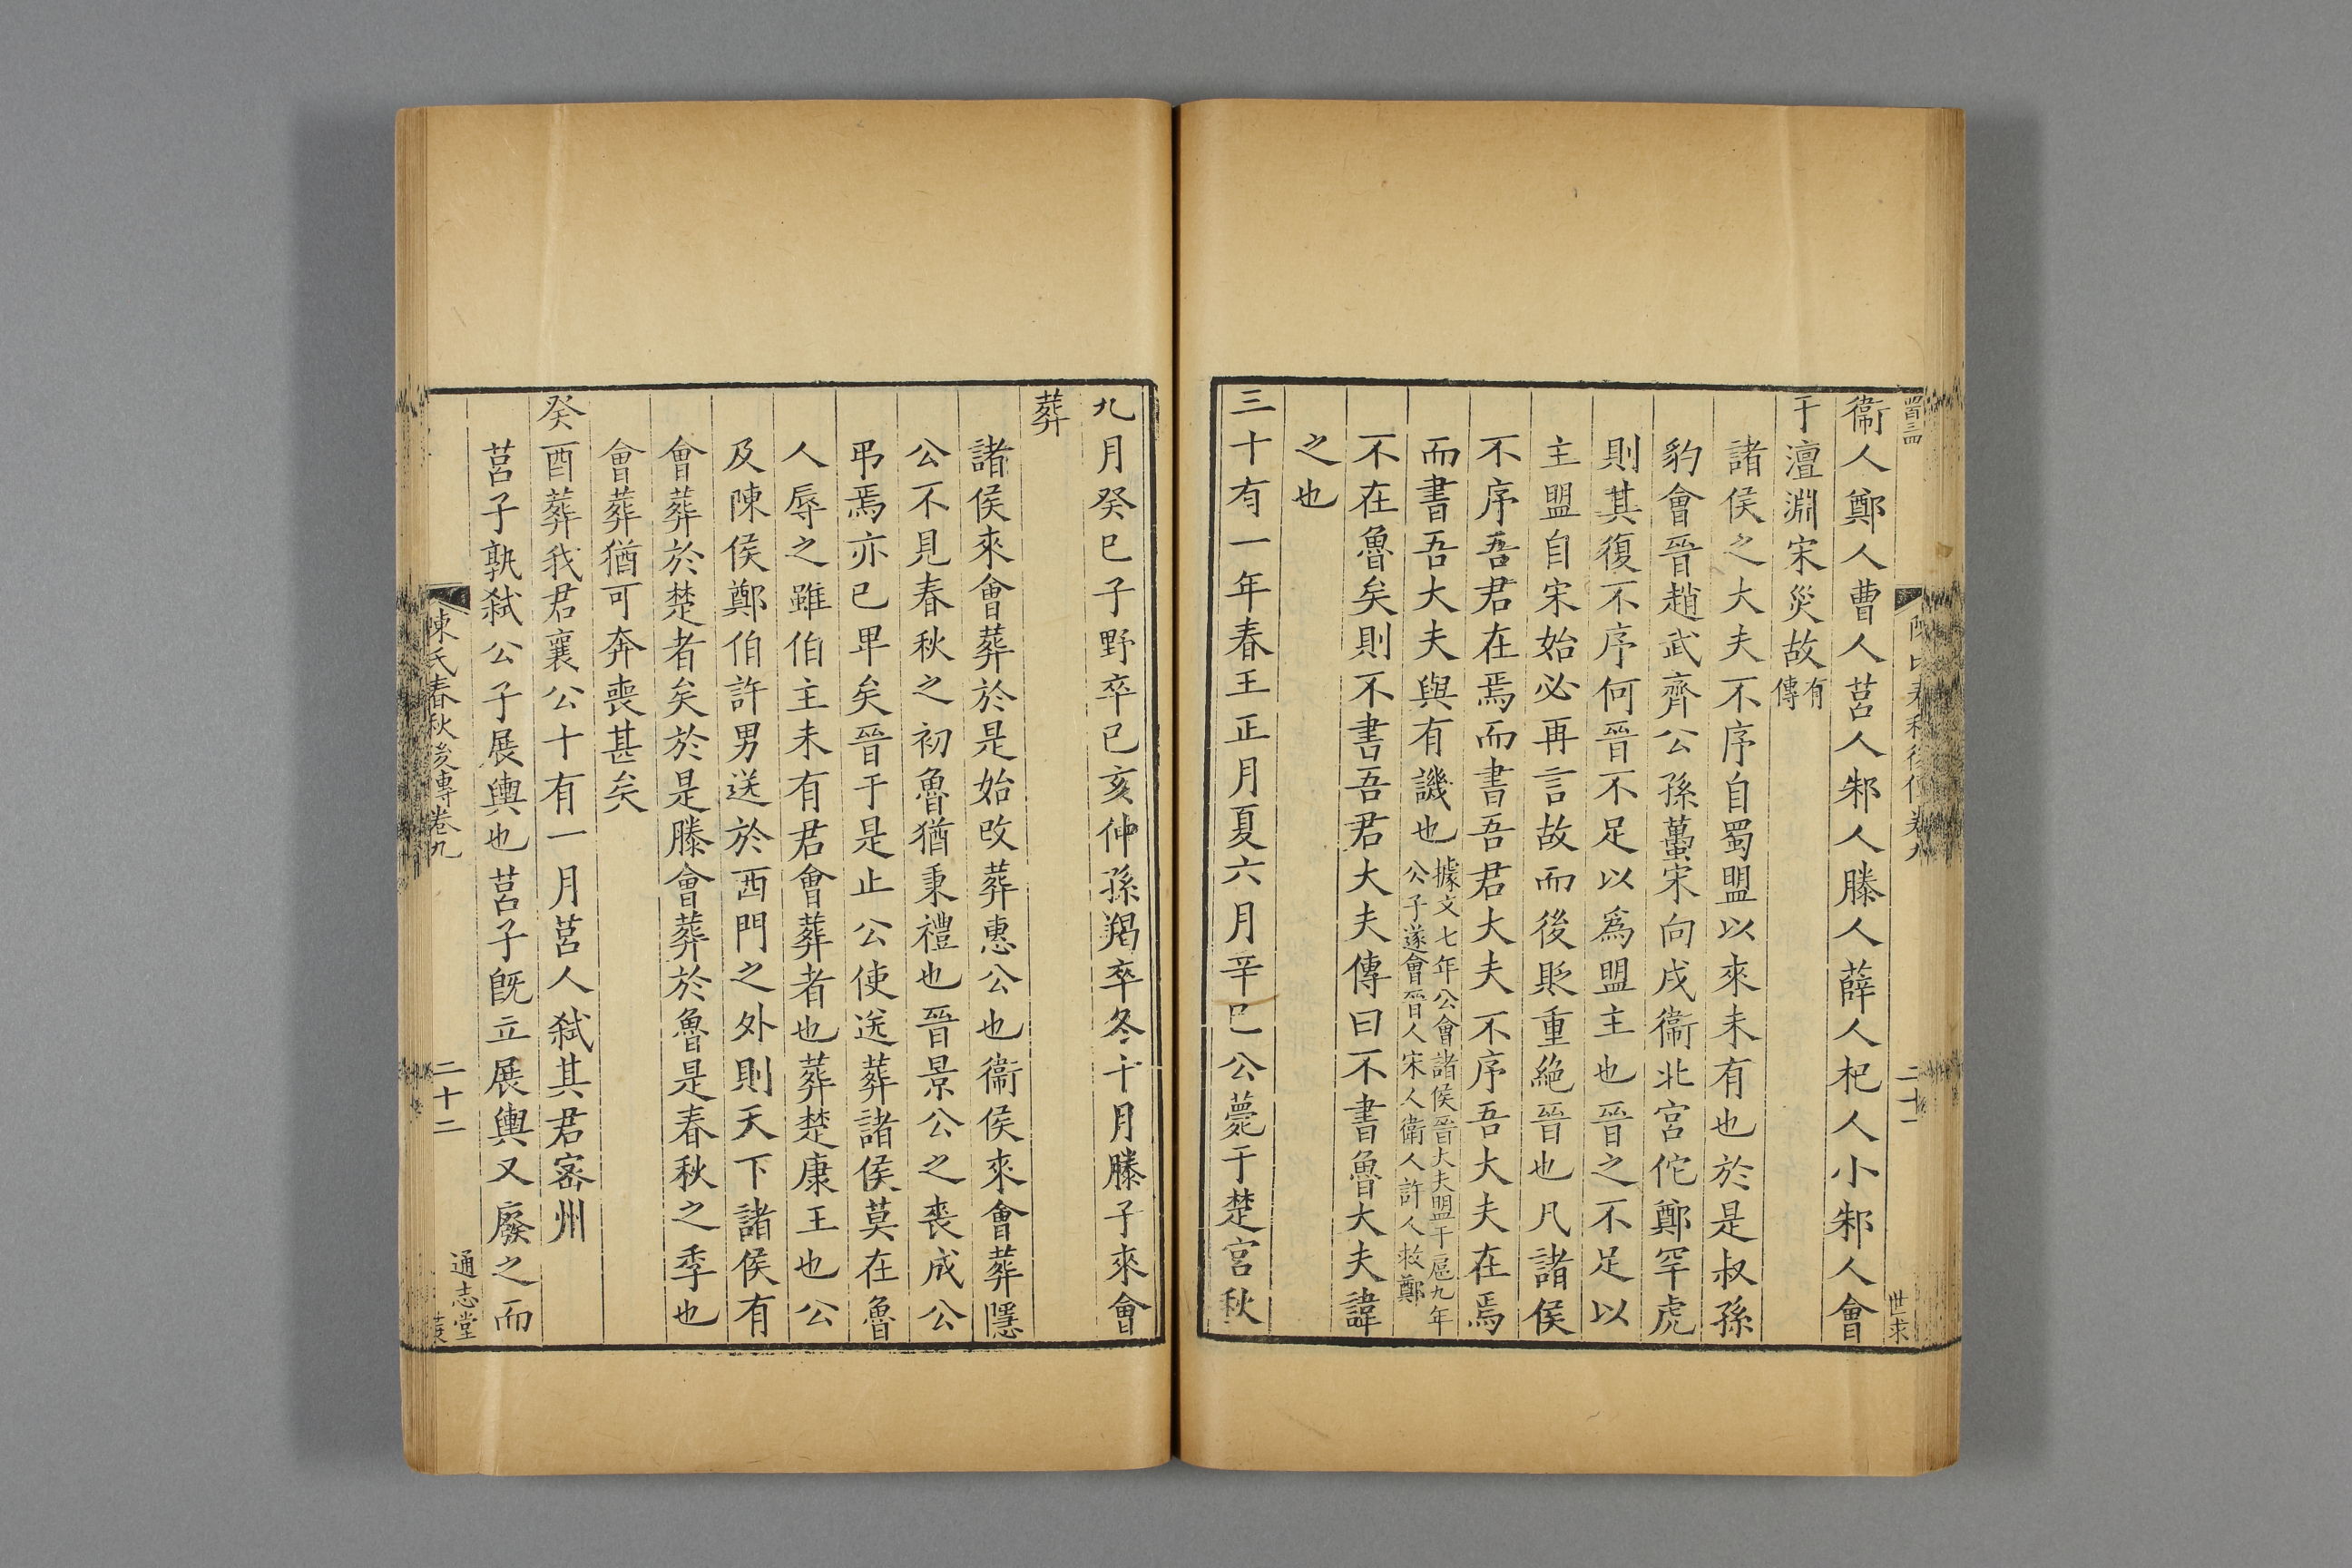 衞人鄭人曹人莒人邾人滕人薛人杞人小邾人會
于澶淵宋災故有傳
諸侯之大夫不序自蜀盟以來未有也於是叔孫
豹會晉趙武齊公孫蠆宋向戌衞北宮佗鄭罕虎
則其復不序何晉不足以爲盟主也晉之不足以
主盟自宋始必再言故而後貶重絶晉也凡諸侯
不序吾君在焉而書吾君大夫不序吾大夫在焉
而書吾大夫與有譏也據文七年公會諸侯晉大夫盟于扈九年公子遂會晉人宋人衛人許人救鄭
不在魯矣則不書吾君大夫傳曰不書魯大夫諱
之也
三十有一年春王正月夏六月辛巳公薨于楚宮秋
世求
九月癸巳子野卒已亥仲孫羯卒冬十月滕子來會
葬
諸侯來會葬於是始改葬惠公也衞侯來會葬隱
公不見春秋之初魯猶秉禮也晉景公之喪成公
弔焉亦已畢矣晉于是止公使送葬諸侯莫在魯
人辱之雖伯主未有君會葬者也葬楚康王也公
及陳侯鄭伯許男送於西門之外則天下諸侯有
會葬於楚者矣於是滕會葬於魯是春秋之季也
會葬猶可奔喪甚矣
癸酉葬我君襄公十有一月莒人弑其君密州
莒子孰弑公子展輿也莒子旣立展輿又廢之而
陳氏春秋後傳卷九
二十二
通志堂